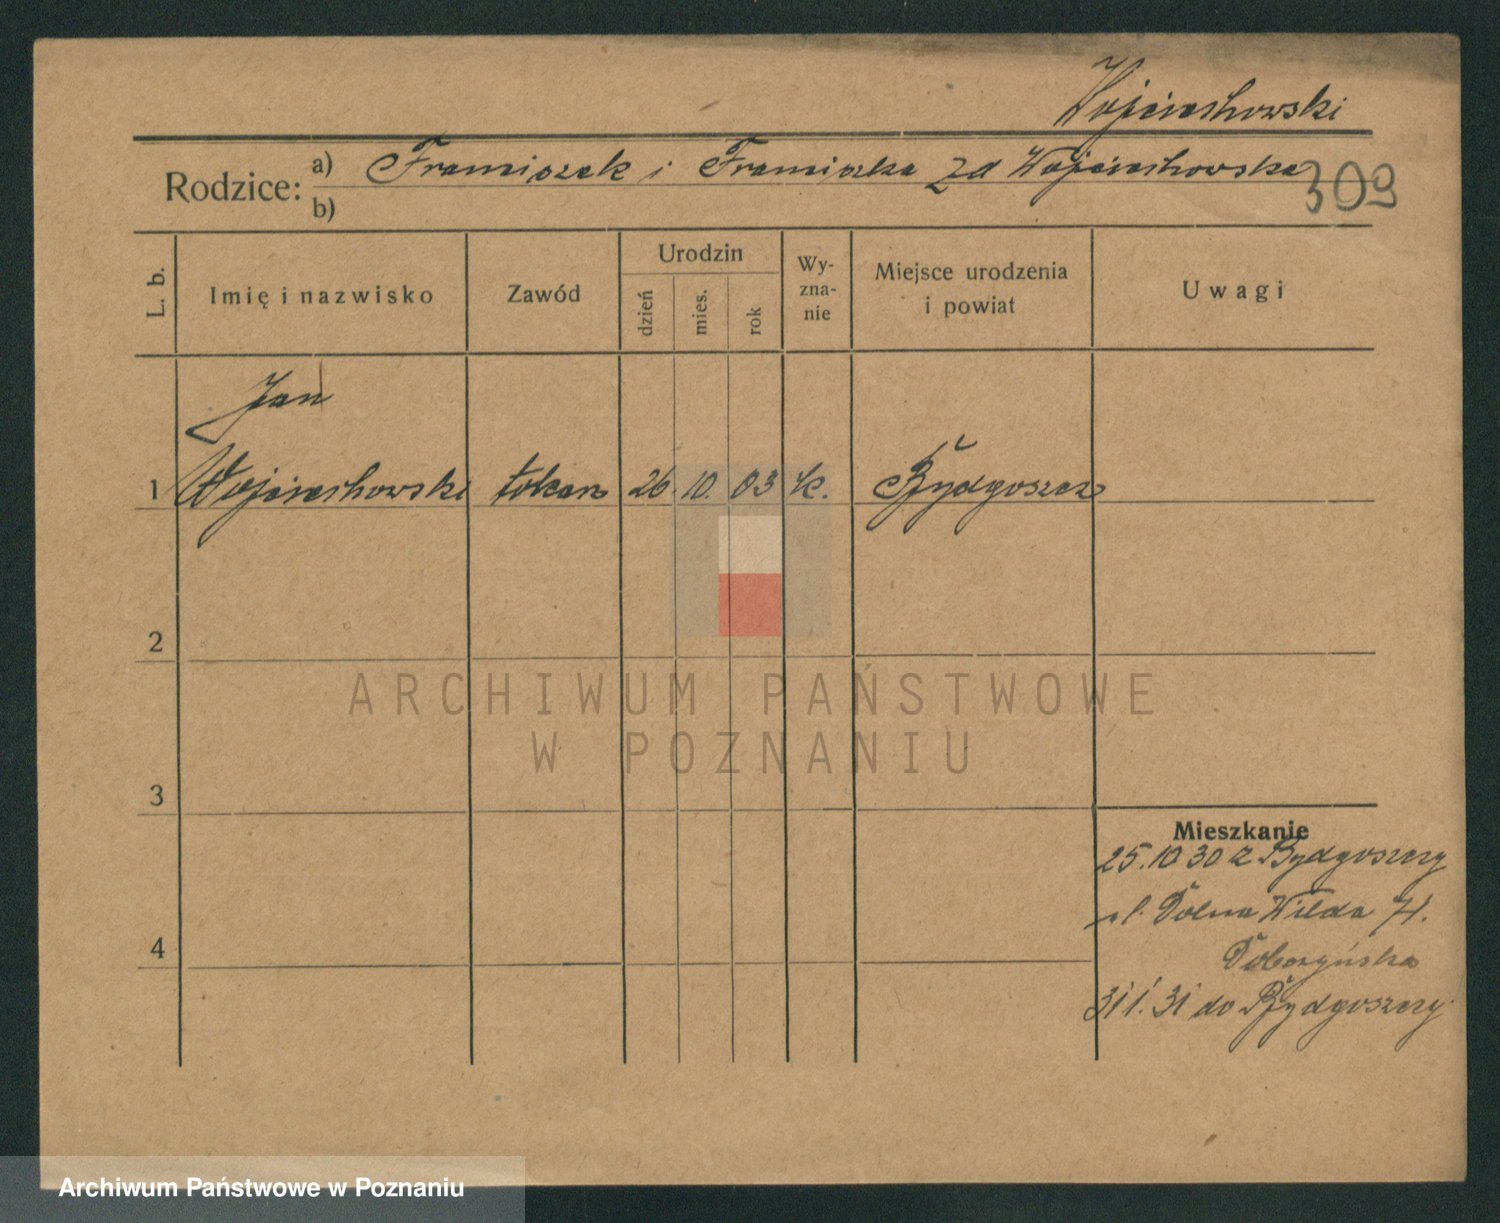 Wojciechowski
Rodzice: a) Franciszek i Franciszka zd Wojciechowska
b)
309
L. b.
Imię i nazwisko
Zawód
Urodzin
dzień
mies.
rok
Wy-
zna-
nie
Miejsce urodzenia
i powiat
Uwagi
Jan
1 Wojciechowski tokarz 26. 10. 03 k. Bydgoszcz
2
3
4
Mieszkanie
25.10 30 z Bydgoszczy
ul. Dolna Wilda 71.
31 1. 31 do Bydgoszczy
ARCHIWUM PAŃSTWOWE
W POZNANIU
Archiwum Państwowe w Poznaniu